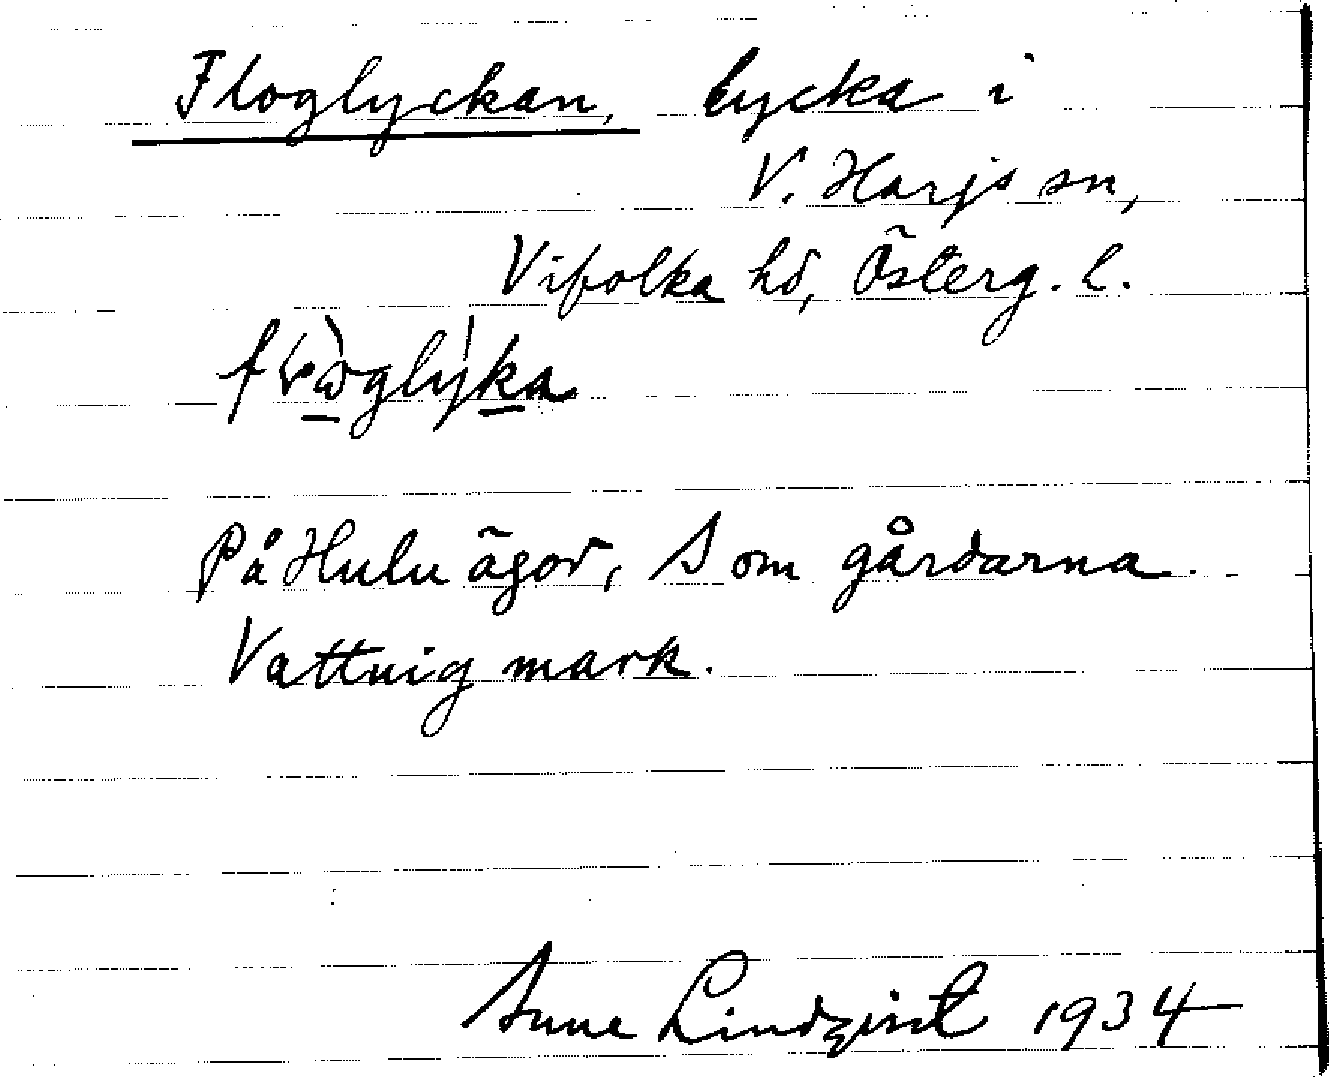 Floglyckan, lycka i
V. Harjs sn,
Vifolka hd, Österg. l.
På Hulu ägor, S om gårdarna.
Vattnig mark.
Sune Lindqvist 1934